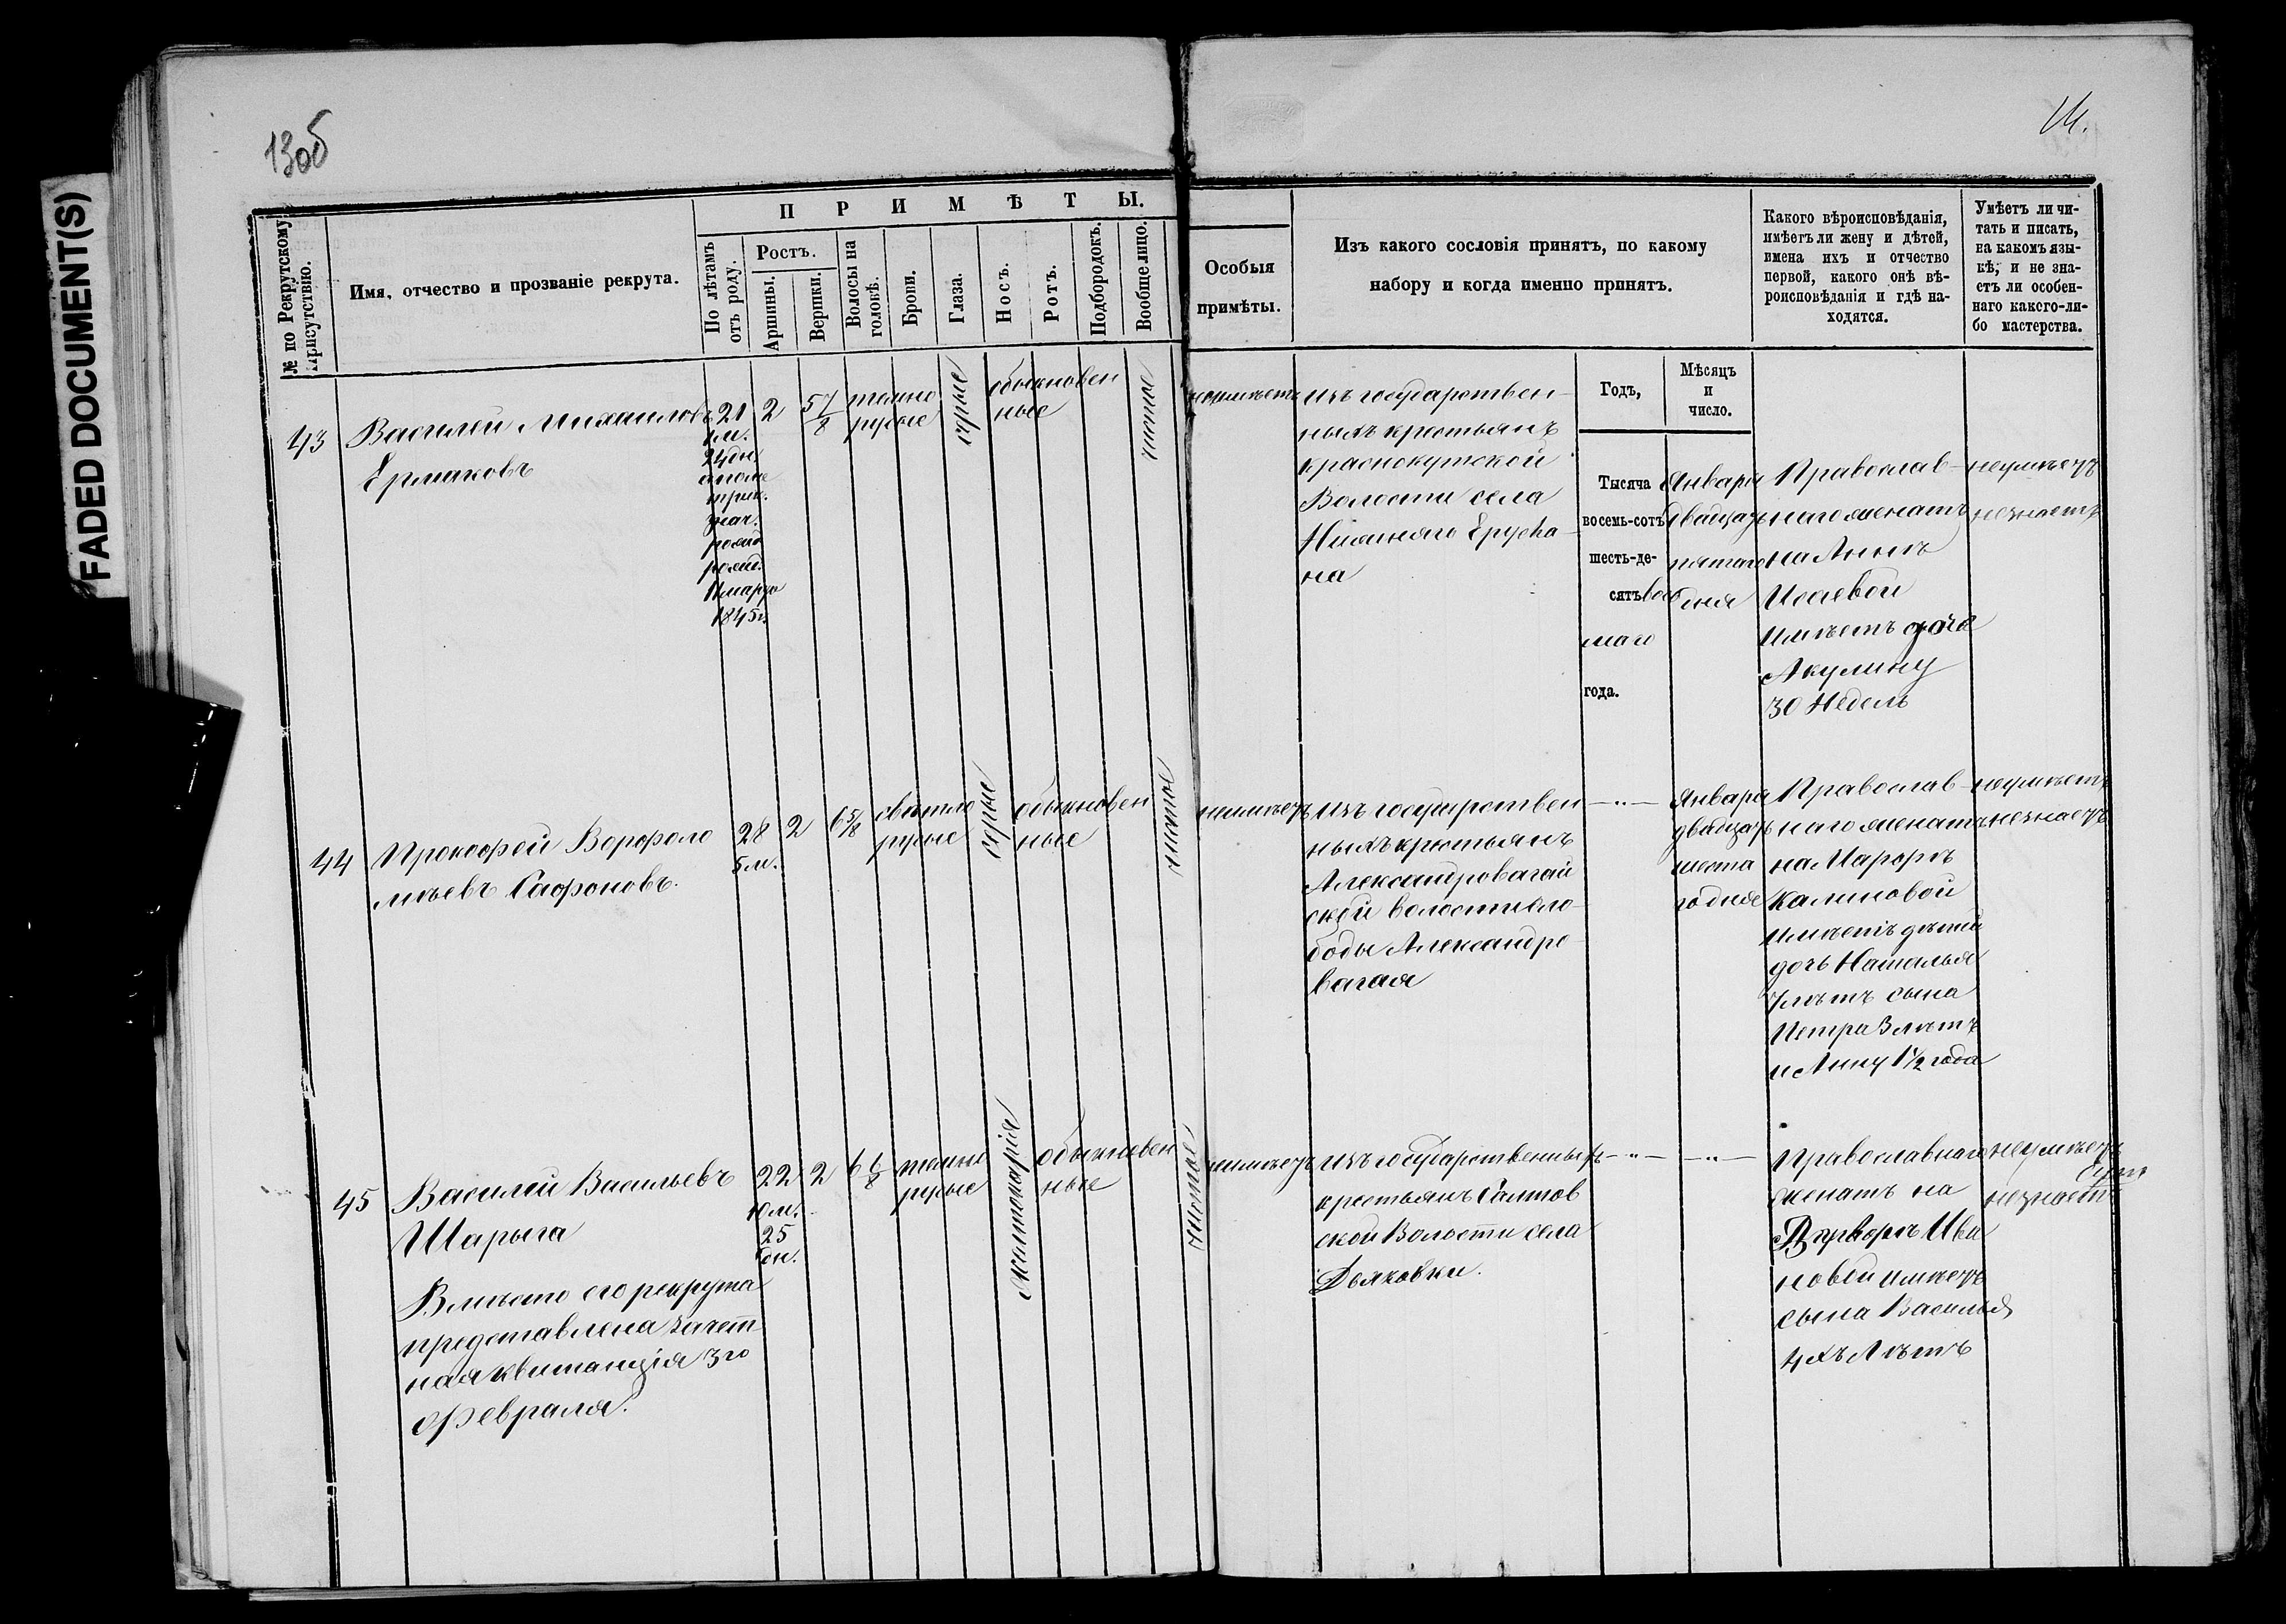 FADED DOCUMENT(S)
13об
14.
№ по Рекрутскому
присутствію.
Имя, отчество и прозваніе рекрута.
П Р И М Ѣ Т Ы.
По лѣтамъ
отъ роду.
Ростъ.
Аршины.
Вершки.
Волосы на
головѣ.
Брови.
Глаза.
Носъ.
Ротъ.
Подбородокъ.
Вообще лицо.
Особыя
примѣты.
Изъ какого сословія принятъ, по какому
набору и когда именно принятъ.
Какого вѣроисповѣданія,
имѣетъ ли жену и дѣтей,
имена ихъ и отчество
первой, какого онѣ вѣ-
роисповѣданія и гдѣ на-
ходятся.
Умѣетъ ли чи-
тать и писать,
на какомъ язы-
кѣ, и не зна-
етъ ли особен-
наго какого-ли-
бо мастерства.
Годъ,
Мѣсяцъ
и
число.
43
Василей Михаиловъ
Ермаковъ
21
24 дн.
1845 г.
2
5 7/8
темно
русые
серые
обыкновен
ные
чистое
неимѣетъ
изъ государствен-
ныхъ крестьянъ
краснокутской
Волости села
Нижняго Еруска-
на
Тысяча
восемь-сотъ
шесть-де-
сятъ вось
маго
года.
Января
двадцать
пятаго
дня
Православ-
наго женатъ
на Аннѣ
Исаевой
имѣетъ дочь
Акулину
30 Недель
неумѣетъ
незнаетъ
44
Прокофей Ворфоло
мѣевъ Сафоновъ.
28
5 м.
2
6 5/8
светло
русые
серые
обыкновен
ные
чистое
неимѣетъ
изъ государствен
ныхъ крестьянъ
Александровагай
ской волости сло-
боды Александро-
вагая
— " —
Января
двадцать
шеста
го дня
Православ-
наго женатъ
на Марфѣ
Калиновой
имѣетъ дѣтей
дочь Наталья
7 лѣтъ сына
Петра 3 лѣтъ
и Анну 1 1/2 года
неумѣетъ
незнаетъ
45
Василей Васильевъ
Шарыга
Вместо его рекрута
представлена зачет-
ная квитанція 3го
Февраля.
22
10 м.
25
дн.
2
6 6/8
темно
русые
обыкновен
ные
чистое
неимѣетъ
изъ государственныхъ
крестьянъ Салтов
ской Волости села
Дьяковки.
— " —
— " —
Православнаго
женатъ на
Ива
новой имѣетъ
сына Василья
4хъ Лѣтъ
неумѣетъ
незнаетъ